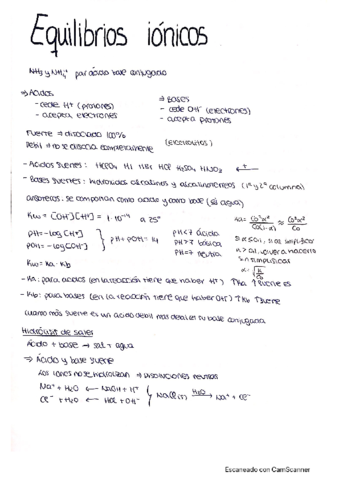 Equilibrios iónicos
NH3 y NH4+ par ácido base conjugado
→ Ácidos
- cede H+ (protones)
- acepta electrones
→ Bases
- cede OH- (electrones)
- acepta protones
Fuerte → disociado 100%
Débil → no se disocia completamente (electrolitos)
- Ácidos fuertes: HClO4 HI HBr HCl H2SO4 HNO3
- Bases fuertes: hidróxidos alcalinos y alcalinotérreos (1ª y 2ª columna)
anfóteros: se comportan como ácido y como base (ej agua)
Kw = [OH-][H+] = 1·10^-14 a 25°
pH = -log[H+]
pOH = -log[OH-]
pH + pOH = 14
pH<7 ácida
pH>7 básica
pH=7 neutra
Kw = Ka · Kb
- Ka: para ácidos (en la reacción tiene que haber H+) ↑Ka ↑fuerte es
- Kb: para bases (en la reacción tiene que haber OH-) ↑Kb ↑fuerte
Cuanto más fuerte es un ácido más débil es su base conjugada
Hidrólisis de sales
Ácido + base → sal + agua
→ Ácido y base fuerte
Los iones no se hidrolizan → Disoluciones neutras
Na+ + H2O ← NaOH + H+
Cl- + H2O ← HCl + OH-
NaCl(s) H2O → Na+ + Cl-
Escaneado con CamScanner